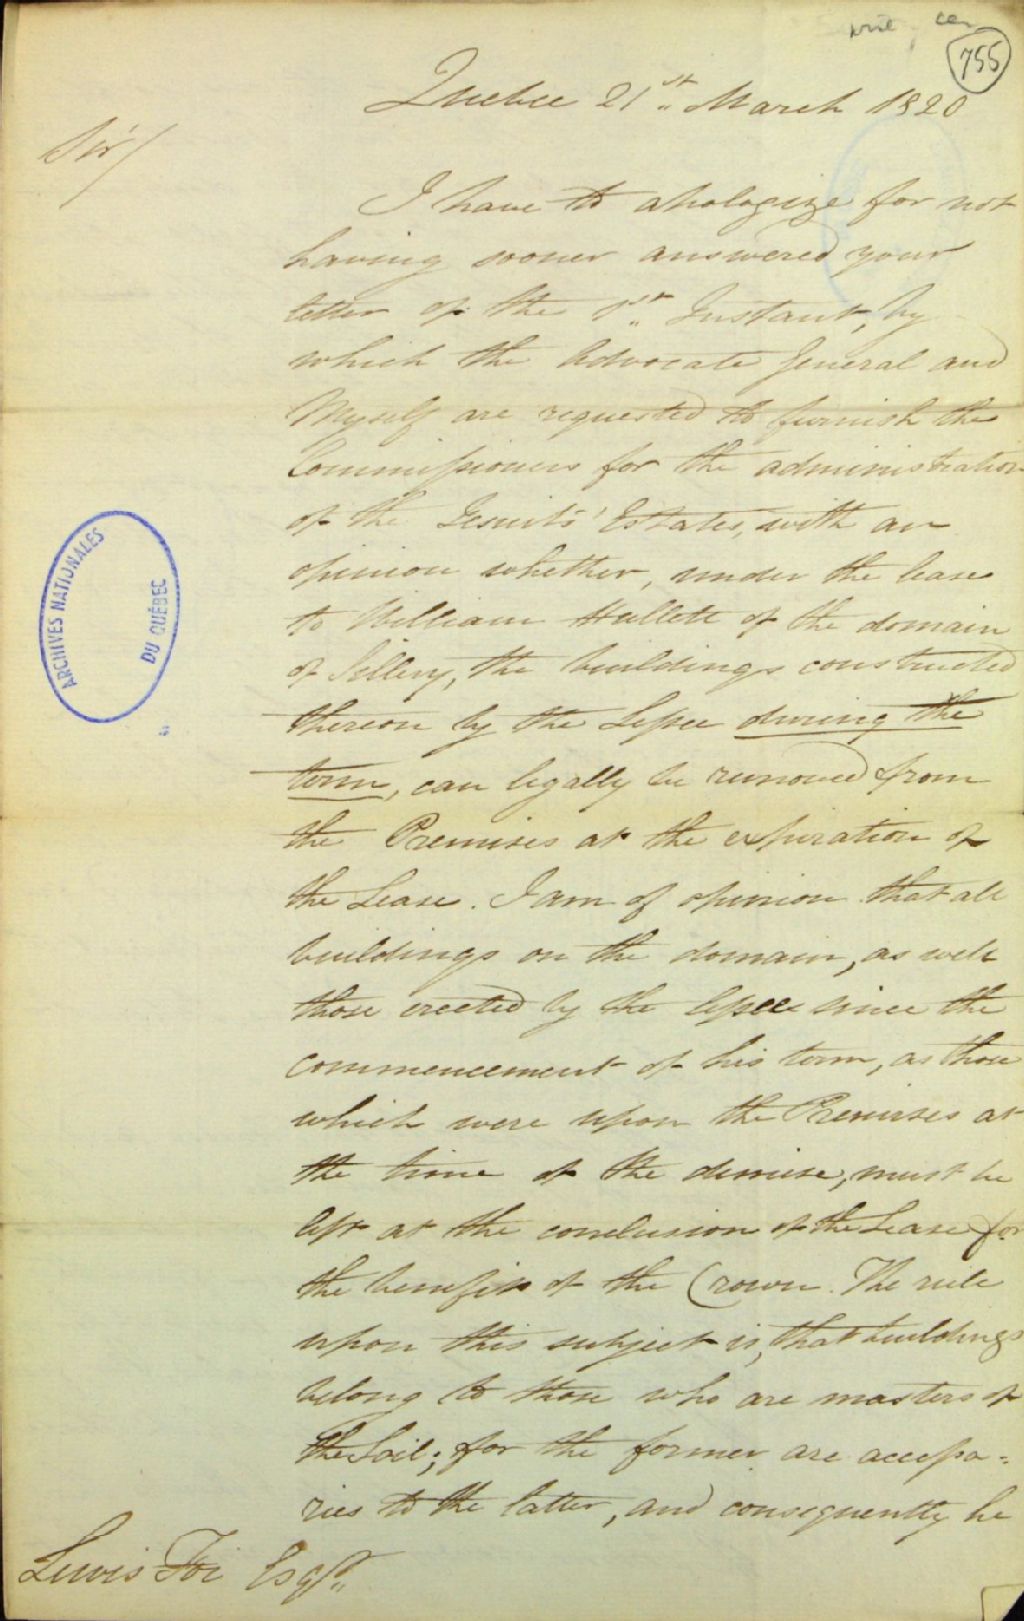 755
Quebec 21st March 1820
Sir/
I have to apologize for not
having sooner answered your
letter of the 1st Instant, by
which the Advocate General and
Myself are requested to furnish the
Commissioners for the administration
of the Jesuits' Estates, with an
opinion whether, under the lease
to William Hullett of the domain
of Sillery, the buildings constructed
thereon by the Lessee during the
term, can legally be removed from
the Premises at the expiration of
the Lease. I am of opinion that all
buildings on the domain, as well
those erected by the lessee since the
commencement of his term, as those
which were upon the Premises at
the time of the demise, must be
left at the conclusion of the Lease for
the benefit of the Crown. The rule
upon this subject is, that buildings
belong to those who are masters of
the Soil; for the former are accesso-
ries to the latter, and consequently he
Lewis Foi Esqr.
ARCHIVES NATIONALES
DU QUÉBEC